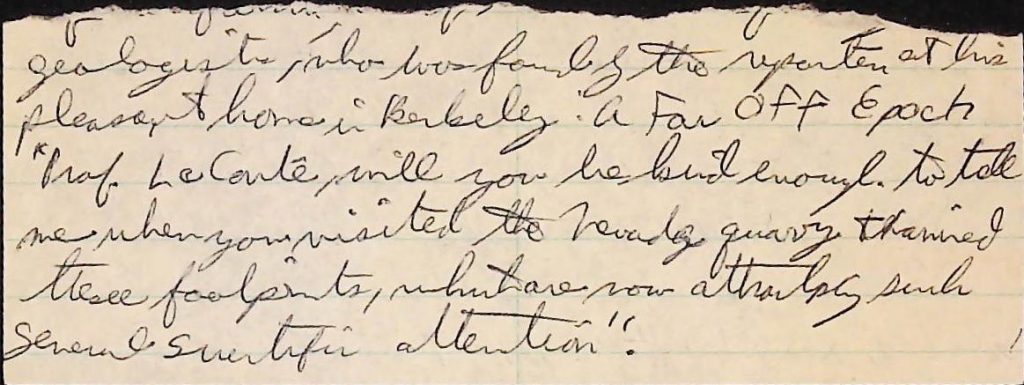 geologists, who was found by the reporter at his
pleasant home in Berkeley. A Far Off Epoch
"Prof. Le Conte, will you be kind enough to tell
me when you visited the Nevada quarry &
these footprints, which are now attracting such
general scientific attention".